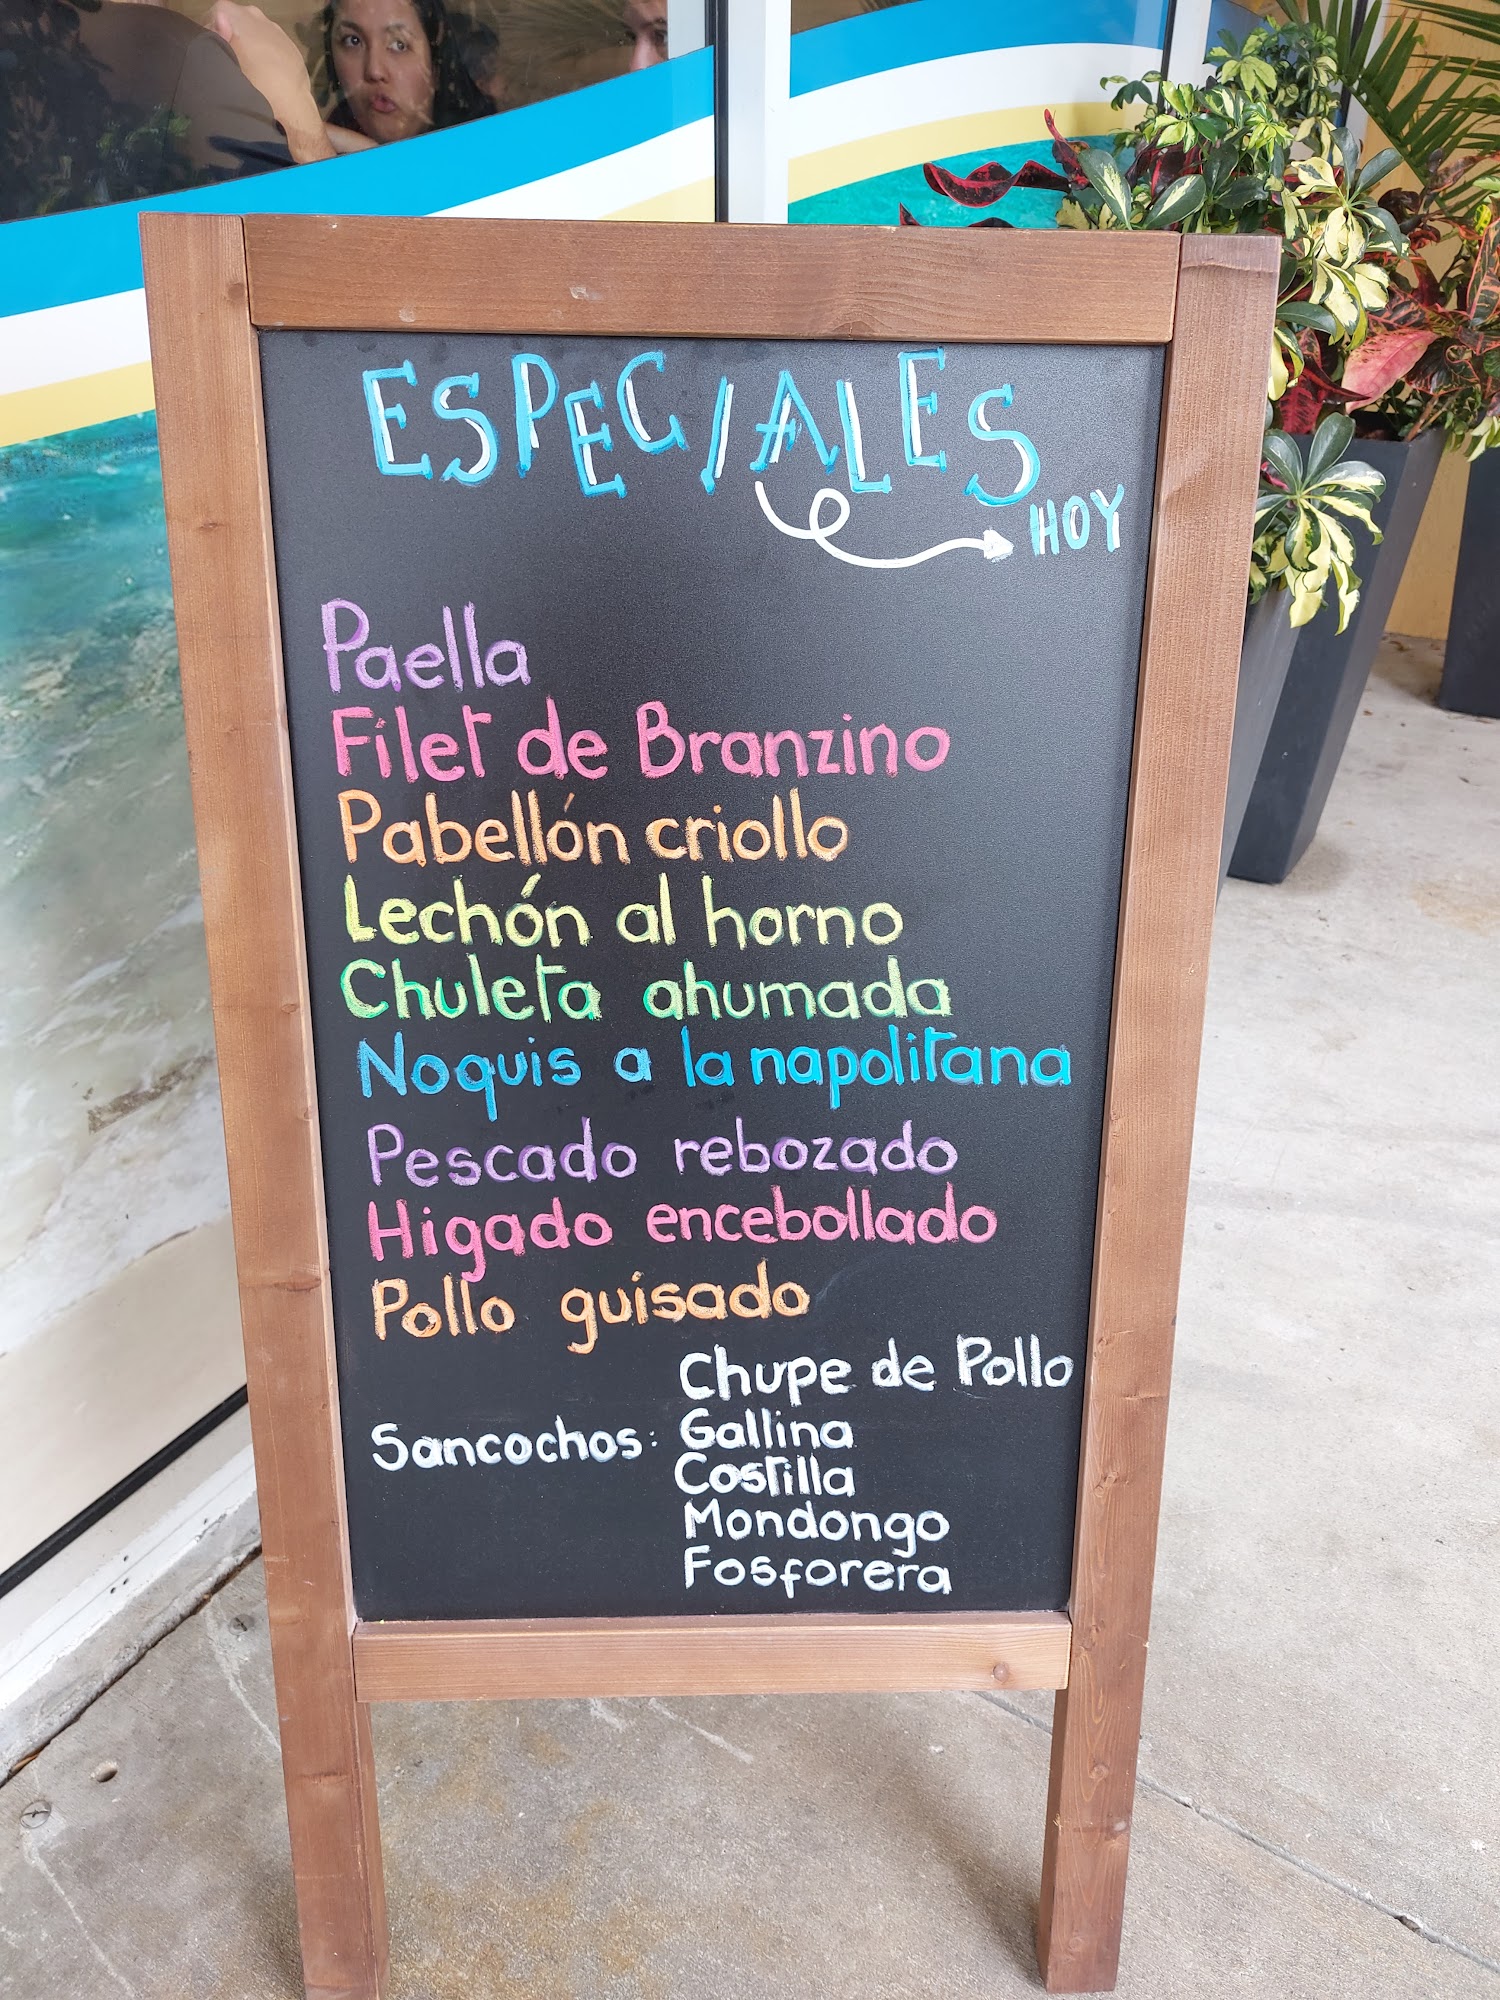 ESPECIALES
HOY
Paella
Filet de Branzino
Pabellón criollo
Lechón al horno
Chuleta ahumada
Noquis a la napolitana
Pescado rebozado
Higado encebollado
Pollo guisado
Sancochos:
Chupe de Pollo
Gallina
Costilla
Mondongo
Fosforera